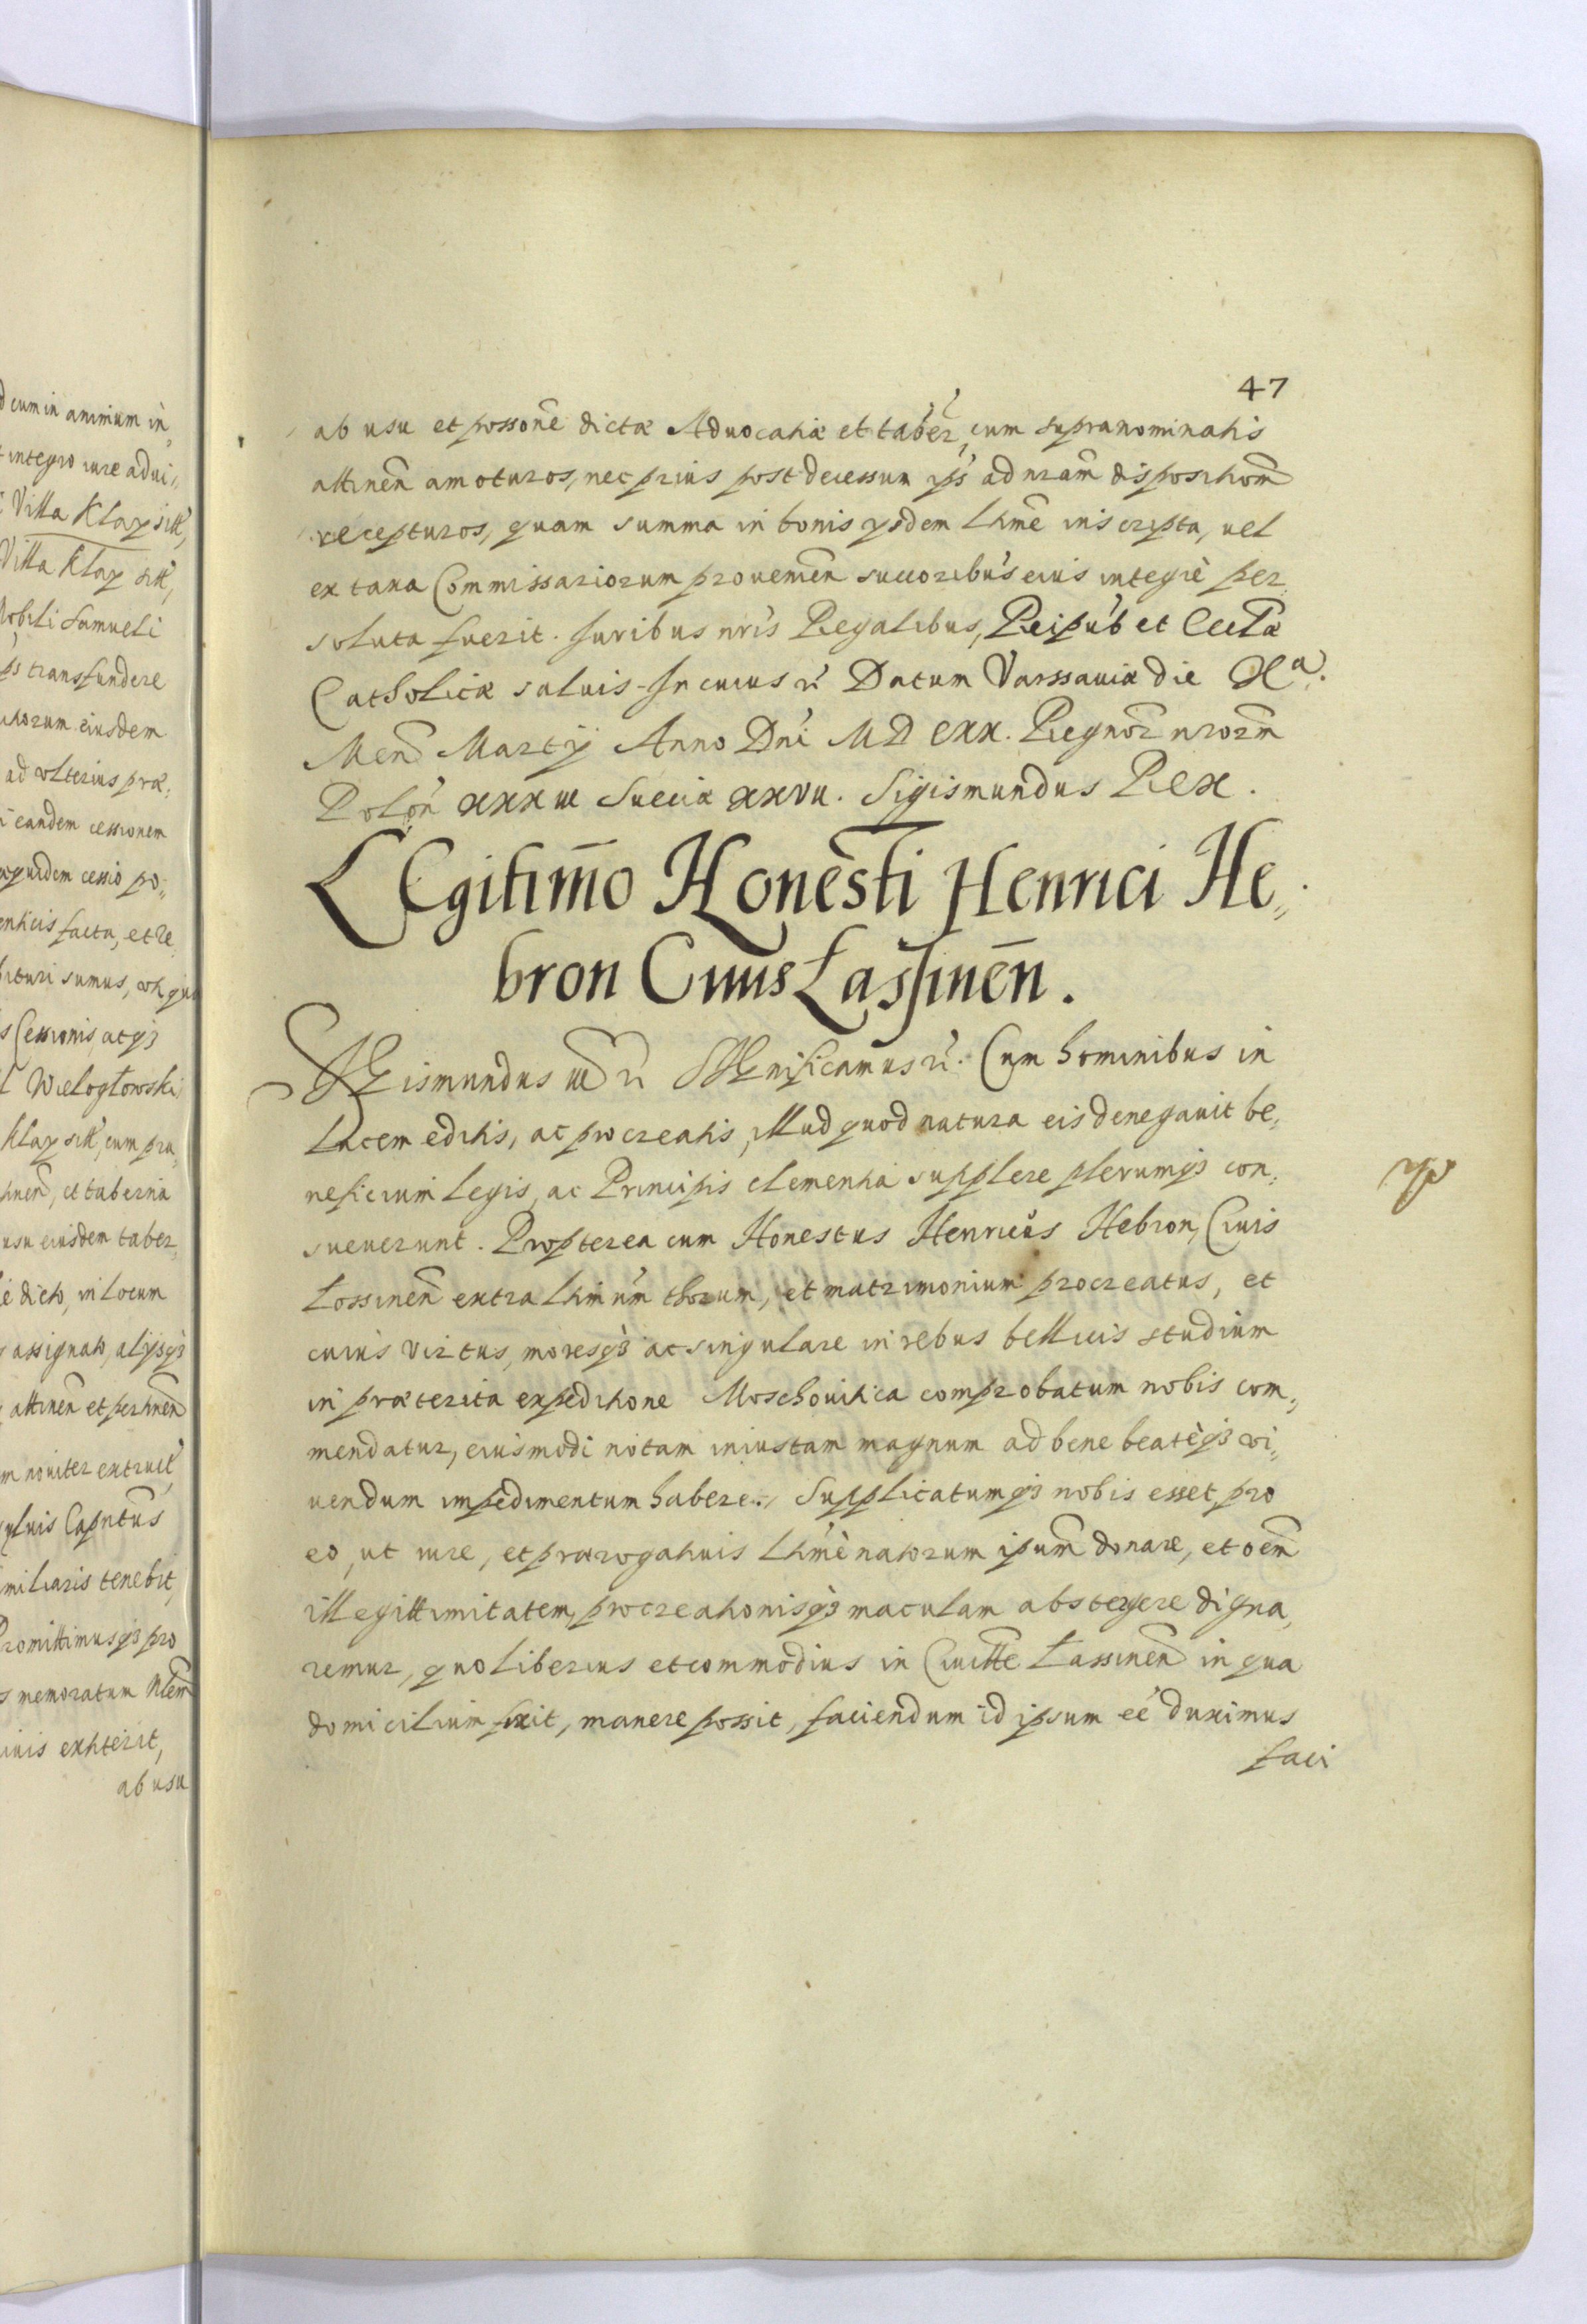 d cum in animum in„
integro iure advi„
Villa Klay sitt,
Villa Klay sitt,
Nobili Samueli
transfundere
eiusdem
ad vlterius præ„
eandem cessionem
quidem cessio po„
facta, et re„
bituri sumus, vti qui
Cessionis, atq3
Wielogłowski
Klay sitt, cum præ„
et taberna
usu eiusdem taber„
dicto, in locum
assignato, alijsq3
attinen et pertinen
m noviter extruct,
Capntus
miliaris tenebit,
Promittimusq3 pro
memoratum Nlem
exhterit,
ab usu
47
ab usu et possone dictæ Aduocatiæ et taber, cum supranominatis
attinen amoturos, nec prius post decessum ips ad nram dispositiom
recepturos, quam summa in bonis ysdem lhme inscripta, uel
ex taxa Commissariorum prouenien succoribus eius integrè per„
soluta fuerit. Juribus nris Regalibus, Reipub et Eccltæ
Catholicæ saluis. In cuius rei Datum Varssauiæ die Xa.
Men Martij Anno Dni MDCXX. Regnor nrorm
Polon XXXIII Sueciæ XXVII. Sigismundus Rex.
LEgitimo Honesti Henrici He„
bron Ciuis Łassinen.
SIgismundus III D r. SIgnificamus r. Cum hominibus in
Lucem editis, ac procreatis, illud quod natura eis denegauit be„
neficium legis, ac Principis clementia supplere plerumq3 con„
sueuerunt. Propterea cum Honestus Henricus Hebron, Ciuis
Łossinen extra lhimum thorum, et matrimonium procreatus, et
cuius virtus, moresq3 ac singulare in rebus bellicis studium
in præterita expeditione Moschouitica comprobatum nobis com„
mendatur, eiusmodi notam iniustam magnum ad bene beatèq3 vi„
uendum impedimentum habere. Supplicatumq3 nobis esset, pro
eo, ut iure, et prærogatiuis lhmè natorum ipsum donare, et oem
illegittimitatem, procreationisq3 maculam abstergere digna„
remur, quo liberius et commodius in Ciuitte Łassinen in qua
domicilium fixit, manere possit, faciendum id ipsum eé duximus
faci